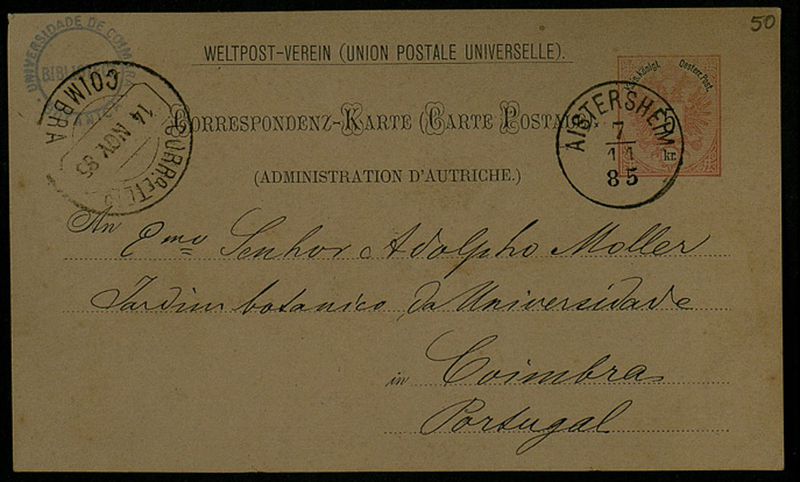 50
UNIVERSIDADE DE COIMBRA
WELTPOST-VEREIN (UNION POSTALE UNIVERSELLE).
Kais. Königl. Oesterr. Post.
COIMBRA
14 NOV 85
CORRESPONDENZ-KARTE (CARTE POSTALE)
AISTERSHEIM
7
11
85
kr.
(ADMINISTRATION D'AUTRICHE.)
An Exmo Senhor Adolpho Moller
Jardim botanico da Universidade
in Coimbra
Portugal